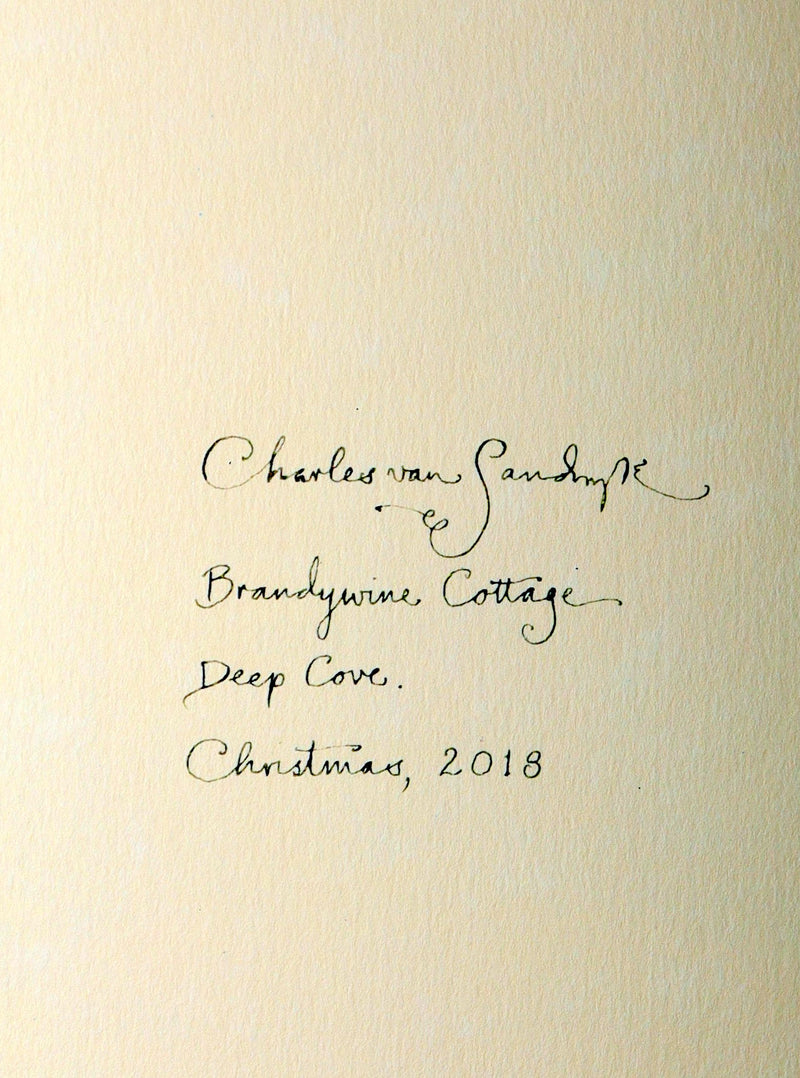 Charles van Sandwyk
Brandywine Cottage
Deep Cove.
Christmas, 2018